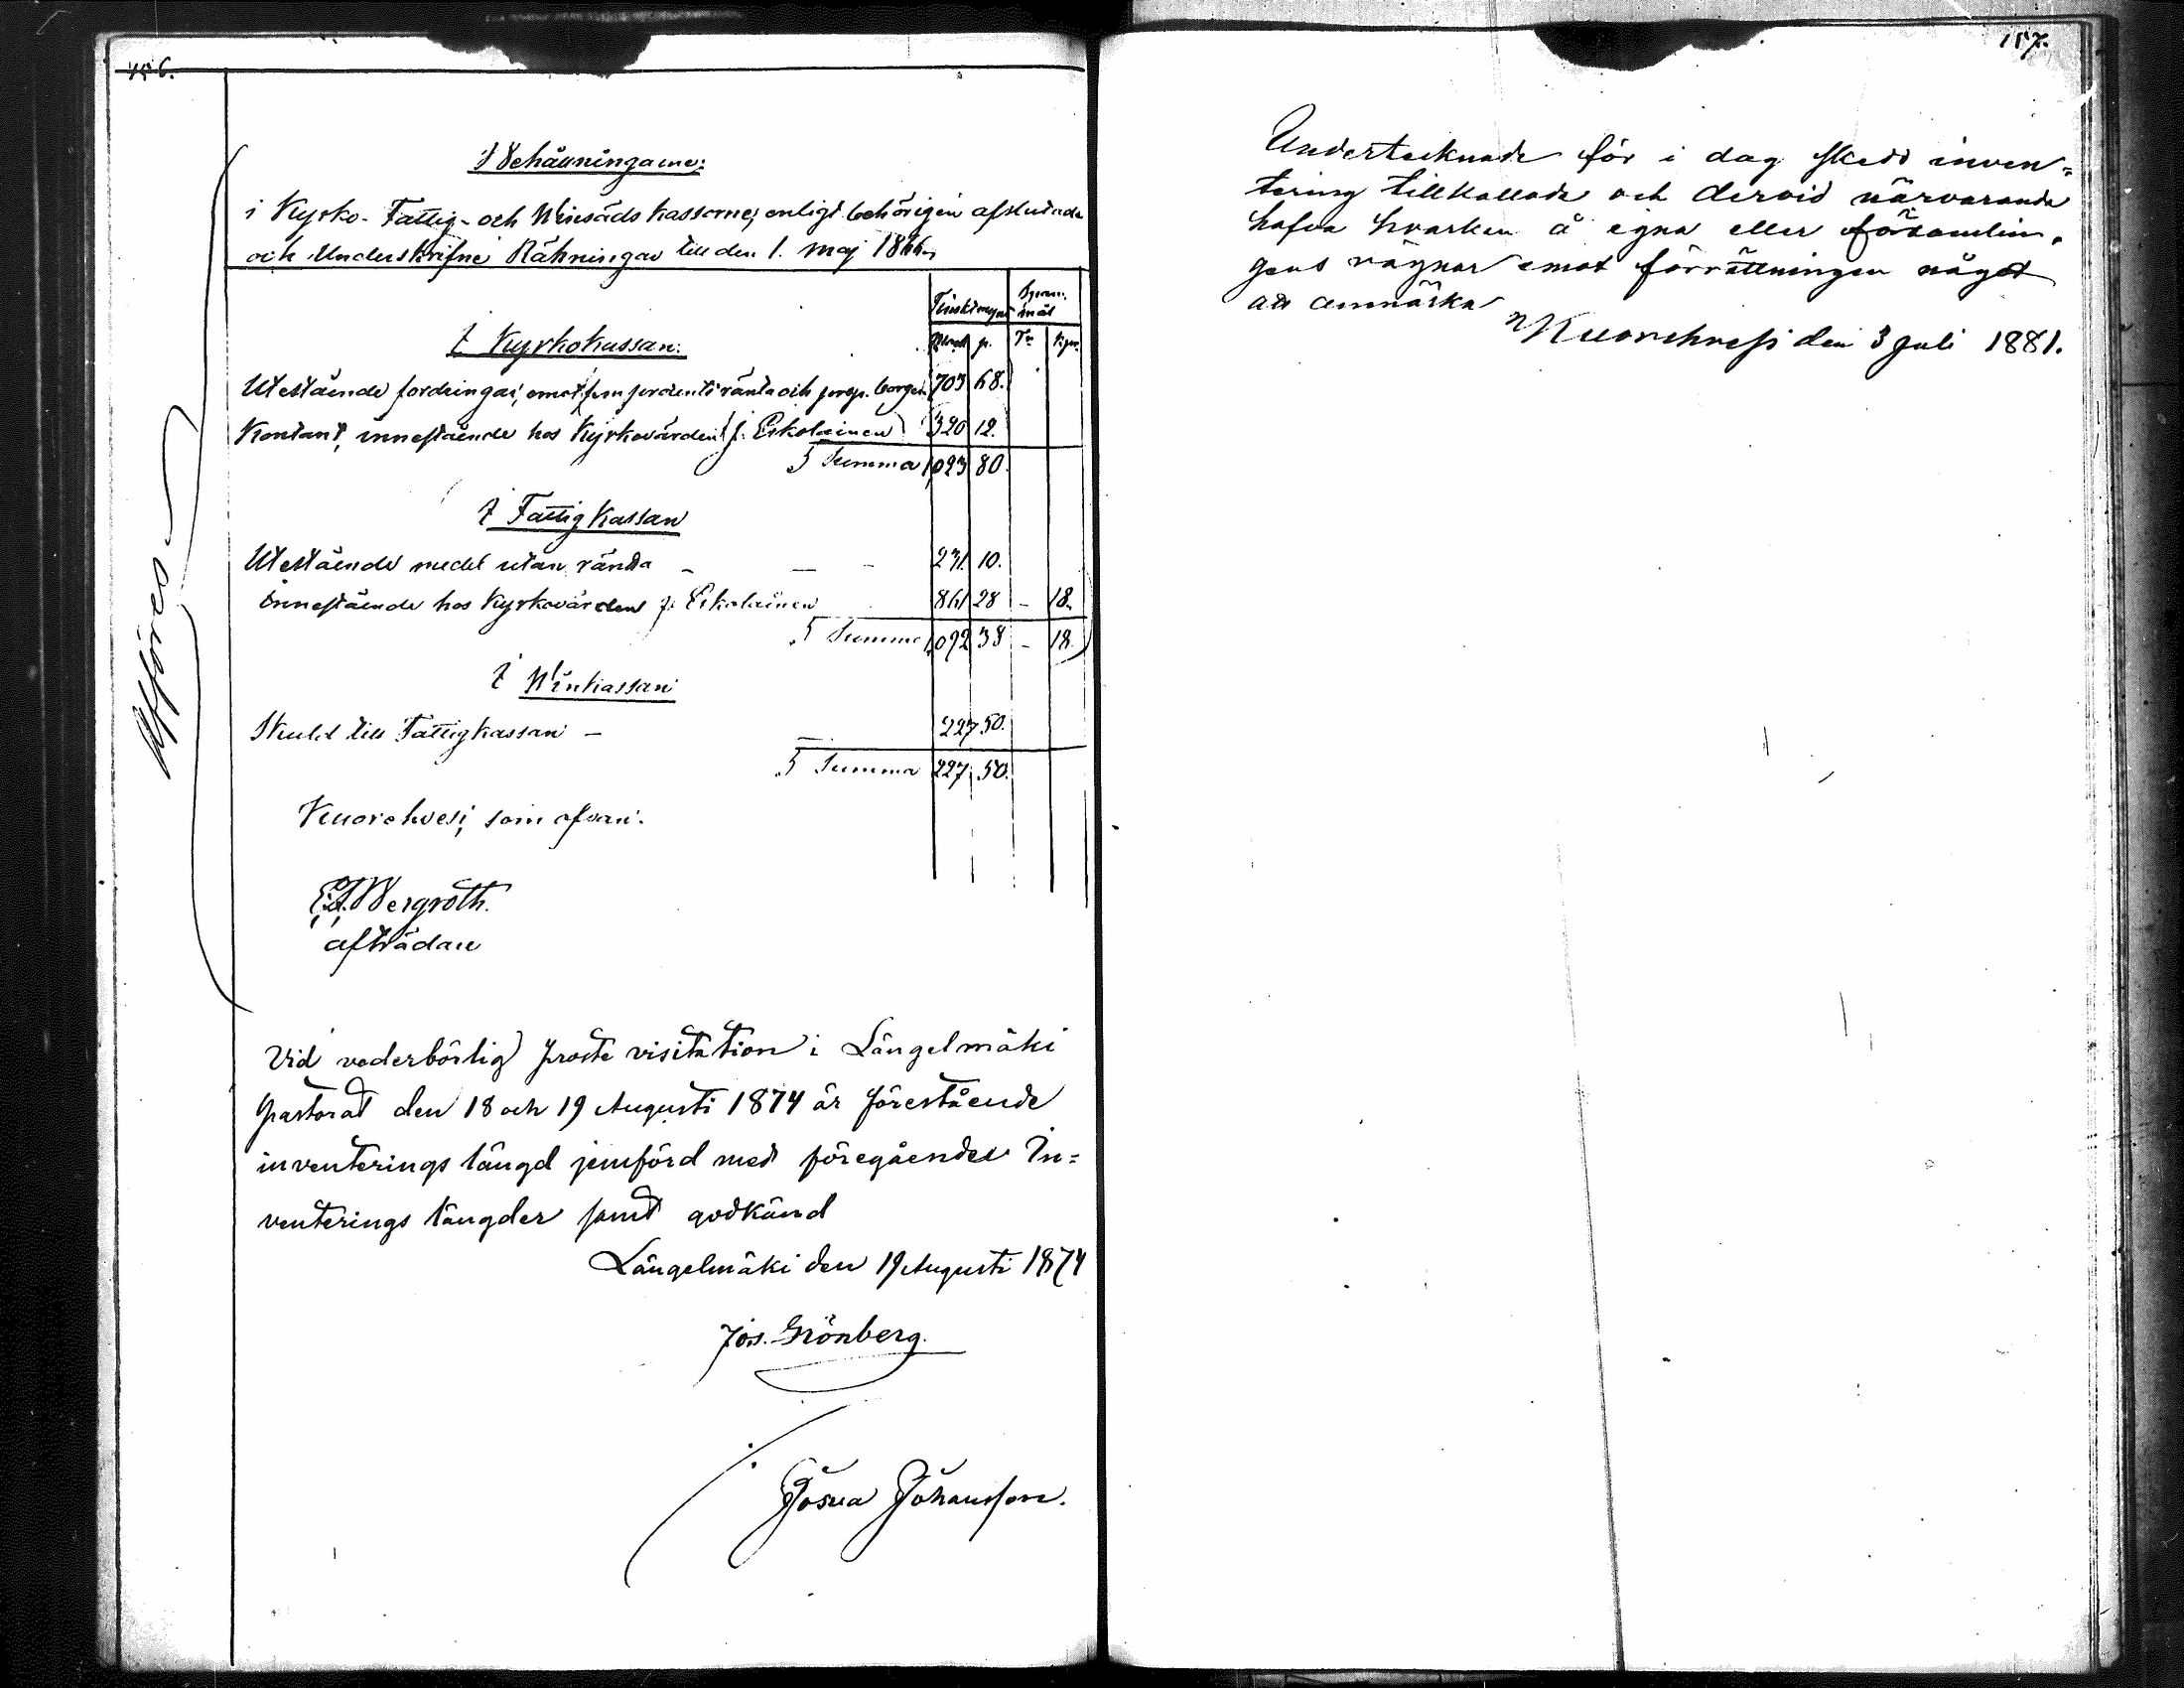 156.
Behållningarne:
i Kyrko- Fattig- och Winsäds kassorne, enligt behörigen afslutade
och Underskrifne Räkningar till den 1. maj 1866.
Finskt mynt Spanmål
Mark p. Tr Kpr
I Kyrkokassan:
Utestående fordringar, emot fem procents ränta och prop. borgen 703 68.
Kontant, innestående hos Kyrkovärden J. Eskolainen 320 12.
Summa 1,023 80.
I Fattigkassan
Utestående medel utan ränta - — - 231 10.
Innestående hos Kyrkovärden J. Eskolainen 861 28 - 18.
Summa 1,092 38 - 18.
I Winkassan
Skuld till Fattigkassan — — 227 50.
Summa 227. 50.
Kuorehvesi, som ofvan.
Bergroth.
afträdare
Afföres
Vid vederbörlig proste visitation i Längelmäki
pastorat den 18 och 19 Augusti 1874 är förestående
inventerings längd jemförd med föregående In=
venterings längder samt godkänd
Längelmäki den 19 Augusti 1874
Jos. Grönberg.
Josua Johansson.
157.
Undertecknade för i dag skedd inven=
tering tillkallade och dervid närvarande
hafva hvarken å egna eller församlin=
gens vägnar emot förrättningen något
att anmärka
Kuorehvesi den 3 Juli 1881.